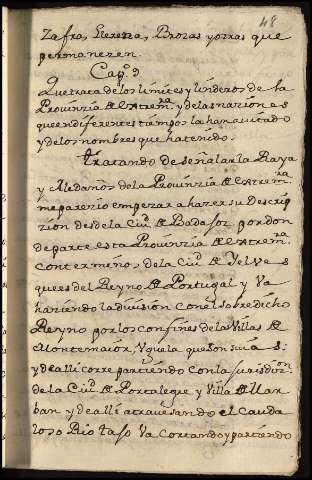 48
Zafra, Llerena, Brozas y otras que
permanezen.
Capº 9
Que trata de los limites y linderos de la
Provinzia de Extremra y de las naziones
que en diferentes tiempos la han avitado
y de los nombres que ha tenido.
Tratando de señalar la Raya
y Aledaños de la Provinzia de Extremra
me parezio empezar a hazer su Descrip
zion desde la Ciud de Badajoz por don
de parte esta Provinzia de Extremra
con termino, de la Ciud de Yelves
que es del Reyno de Portugal y va
haziendo la división con el sobre dicho
Reyno por los confines de las Villas de
Montemaior, Uguela que son suias:
y de alli corre partiendo con la jurisdizon
de la Ciud de Portalegre y Villa de Mar
ban y de alli atravesando el cauda
loso Rio tajo va cortando y partiendo